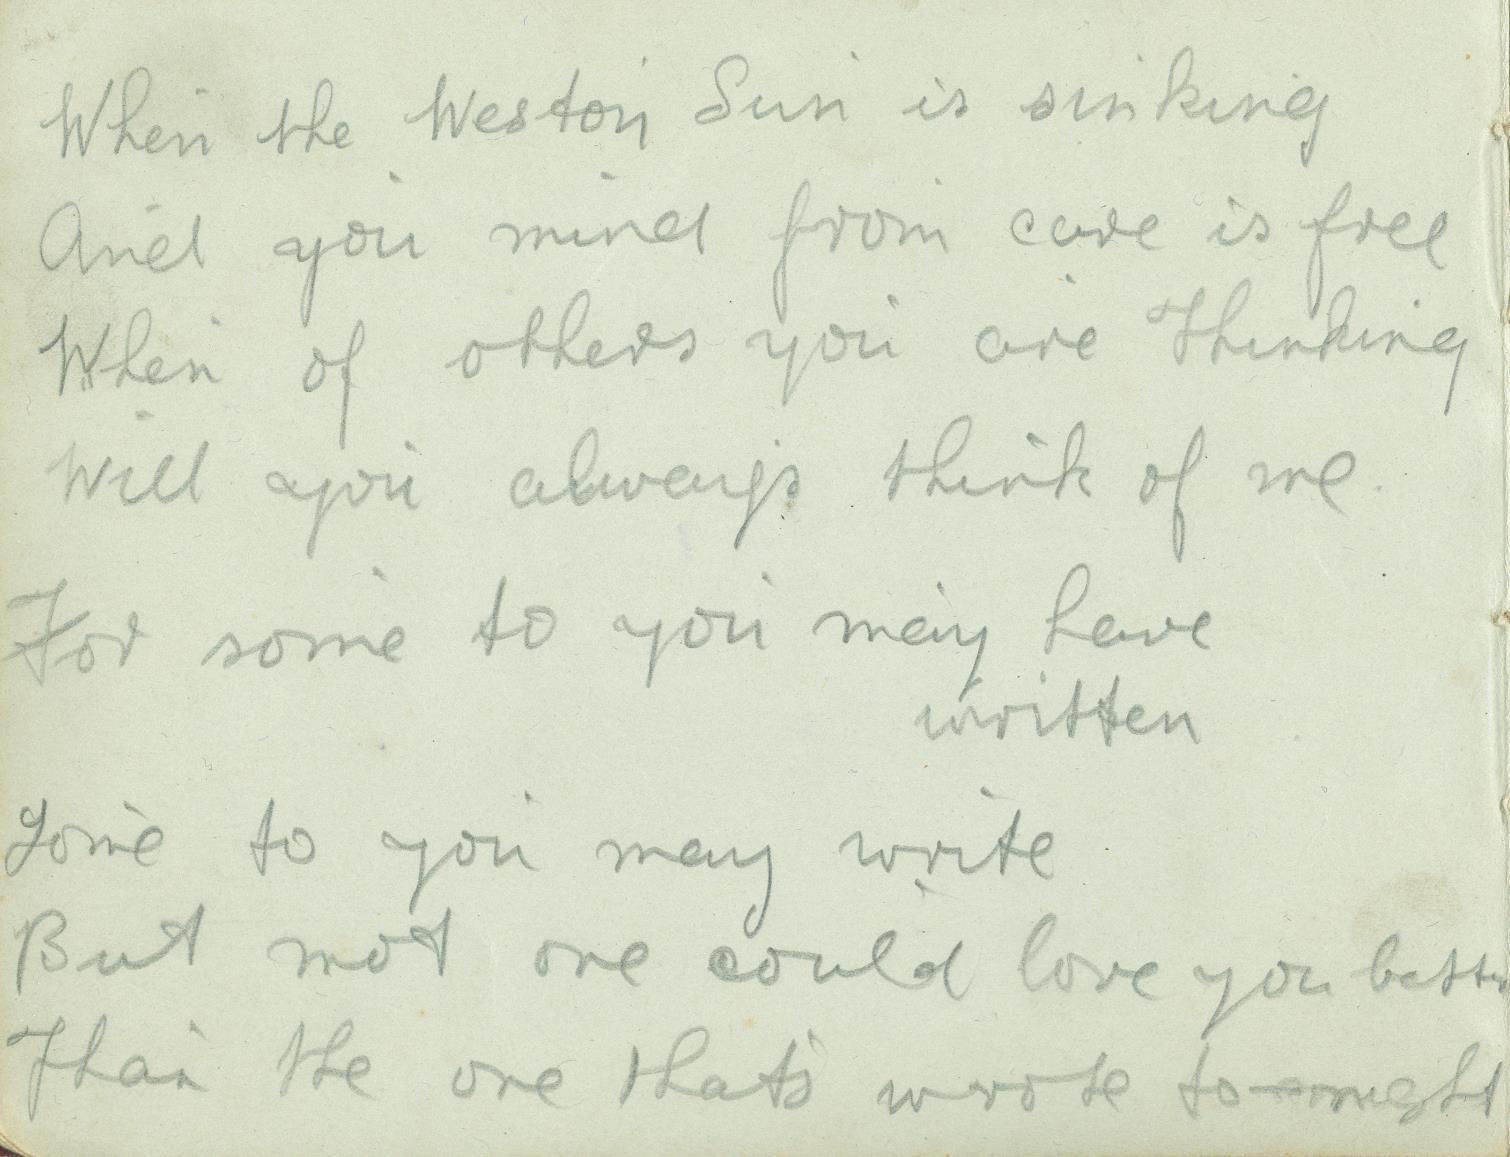 When the Weston Sun is sinking
And you mind from care is free
When of others you are Thinking
Will you always think of me.
For some to you may have
written
Some to you may write
But not one could love you better
Than the one that's wrote to-night